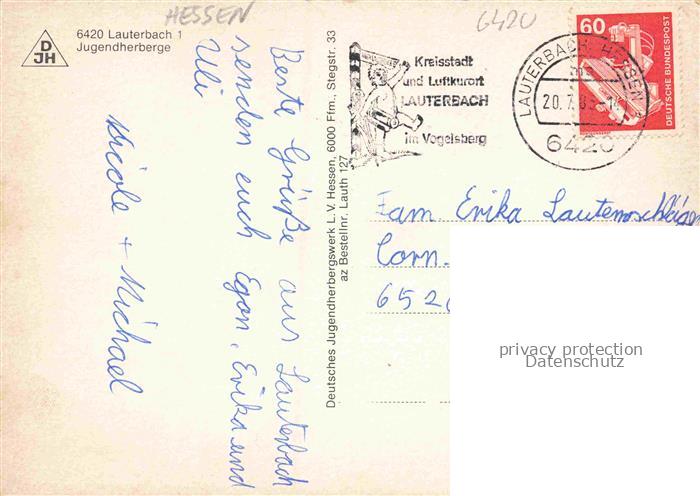 HESSEN
6420
DJH
6420 Lauterbach 1
Jugendherberge
Beste Grüße aus Lauterbach
senden euch Egon, Erika und
Uli
Nicole + Michael
Deutsches Jugendherbergswerk L. V. Hessen, 6000 Ffm., Stegstr. 33
az Bestellnr. Lauth 127
Kreisstadt
und Luftkurort
LAUTERBACH
im Vogelsberg
LAUTERBACH, HESSEN
20.7.
6420
60
DEUTSCHE BUNDESPOST
Fam Erika Lautenschläger
Corn.
652
privacy protection
Datenschutz